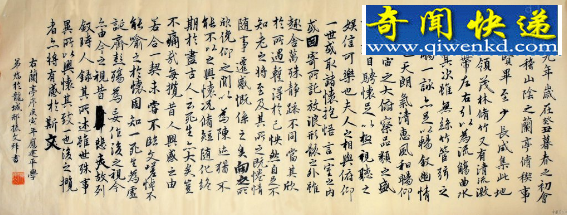 奇聞快递
www.qiwenkd.com
元年歲在癸丑暮春之初會
稽山陰之蘭亭脩稧事
賢畢至少長咸集此地
領茂林脩竹又有清流激
帶左右引以為流觴曲水
其次雖無絲竹管弦之
一詠亦足以暢敘幽情
天朗氣清惠風和暢仰
宙之大俯察品類之盛
目騁懷足以極視聽之
娛信可樂也夫人之相與俯仰
一世或取諸懷抱悟言一室之內
或因寄所託放浪形骸之外雖
趣舍萬殊靜躁不同當其欣
於所遇暫得於己快然自足不
知老之將至及其所之既惓情
隨事遷感慨係之矣向之所
欣俛仰之間以為陳迹猶不
能不以之興懷況脩短隨化終
期於盡古人云死生亦大矣豈
不痛哉每攬昔人興感之由
若合一契未嘗不臨文嗟悼不
能喻之於懷固知一死生為虛
誕齊彭殤為妄作後之視今
亦由今之視昔悲夫故列
敘時人錄其所述雖世殊事
異所以興懷其致一也後之攬
者亦將有感於斯文
右蘭亭序
於龍城